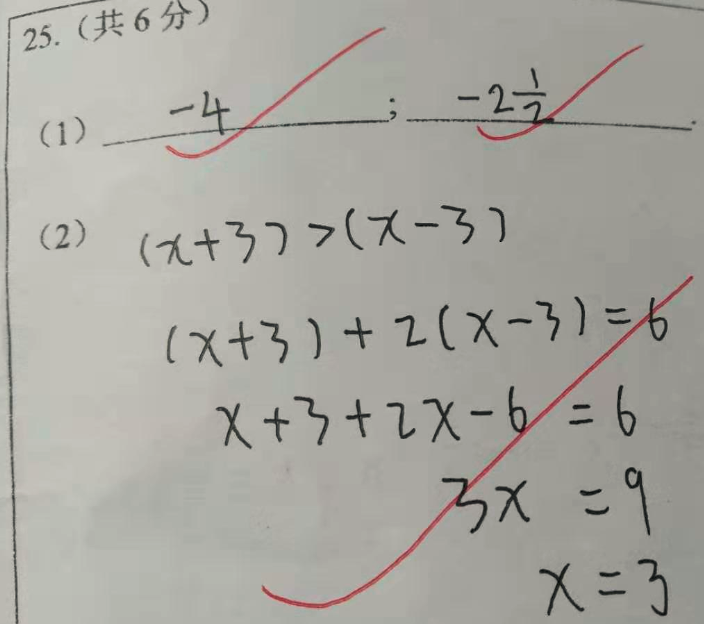 25.（共6分）
(1) -4 ; -2 1/2 .
(2) (x+3)>(x-3)
(x+3)+2(x-3)=6
x+3+2x-6=6
3x=9
x=3